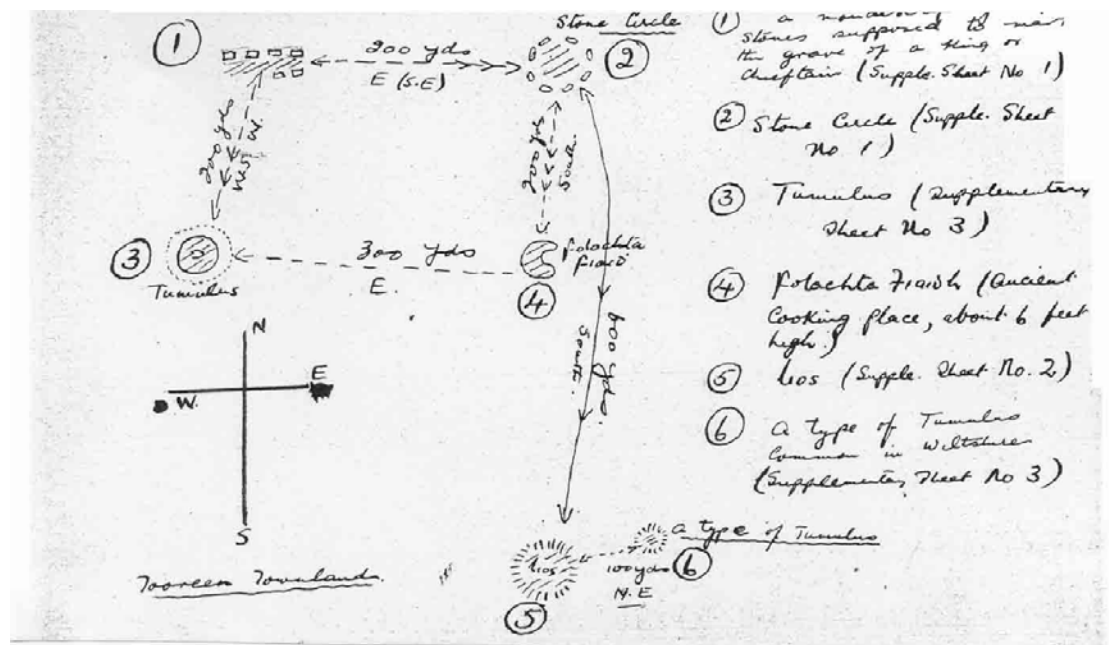 Stone Circle
①
200 yds
E (S.E)
②
200 yds
W.S.W
200 yds
South
③
Tumulus
300 yds
E.
folachta
fiadh
④
600 yds.
South.
N
E
W.
S
Tooreen Townland.
lios
⑤
100 yds
N.E
⑥
a type of Tumulus
① a
stones supposed to
the grave of a King or
Chieftain (Supple. Sheet No 1)
② Stone Circle (Supple. Sheet
No 1)
③ Tumulus (Supplementary
Sheet No 3)
④ folachta Fiadh (ancient
Cooking Place, about 6 feet
high.)
⑤ lios (Supple. Sheet No. 2)
⑥ a type of Tumulus
Common in Wiltshire
(Supplementary Sheet No 3)